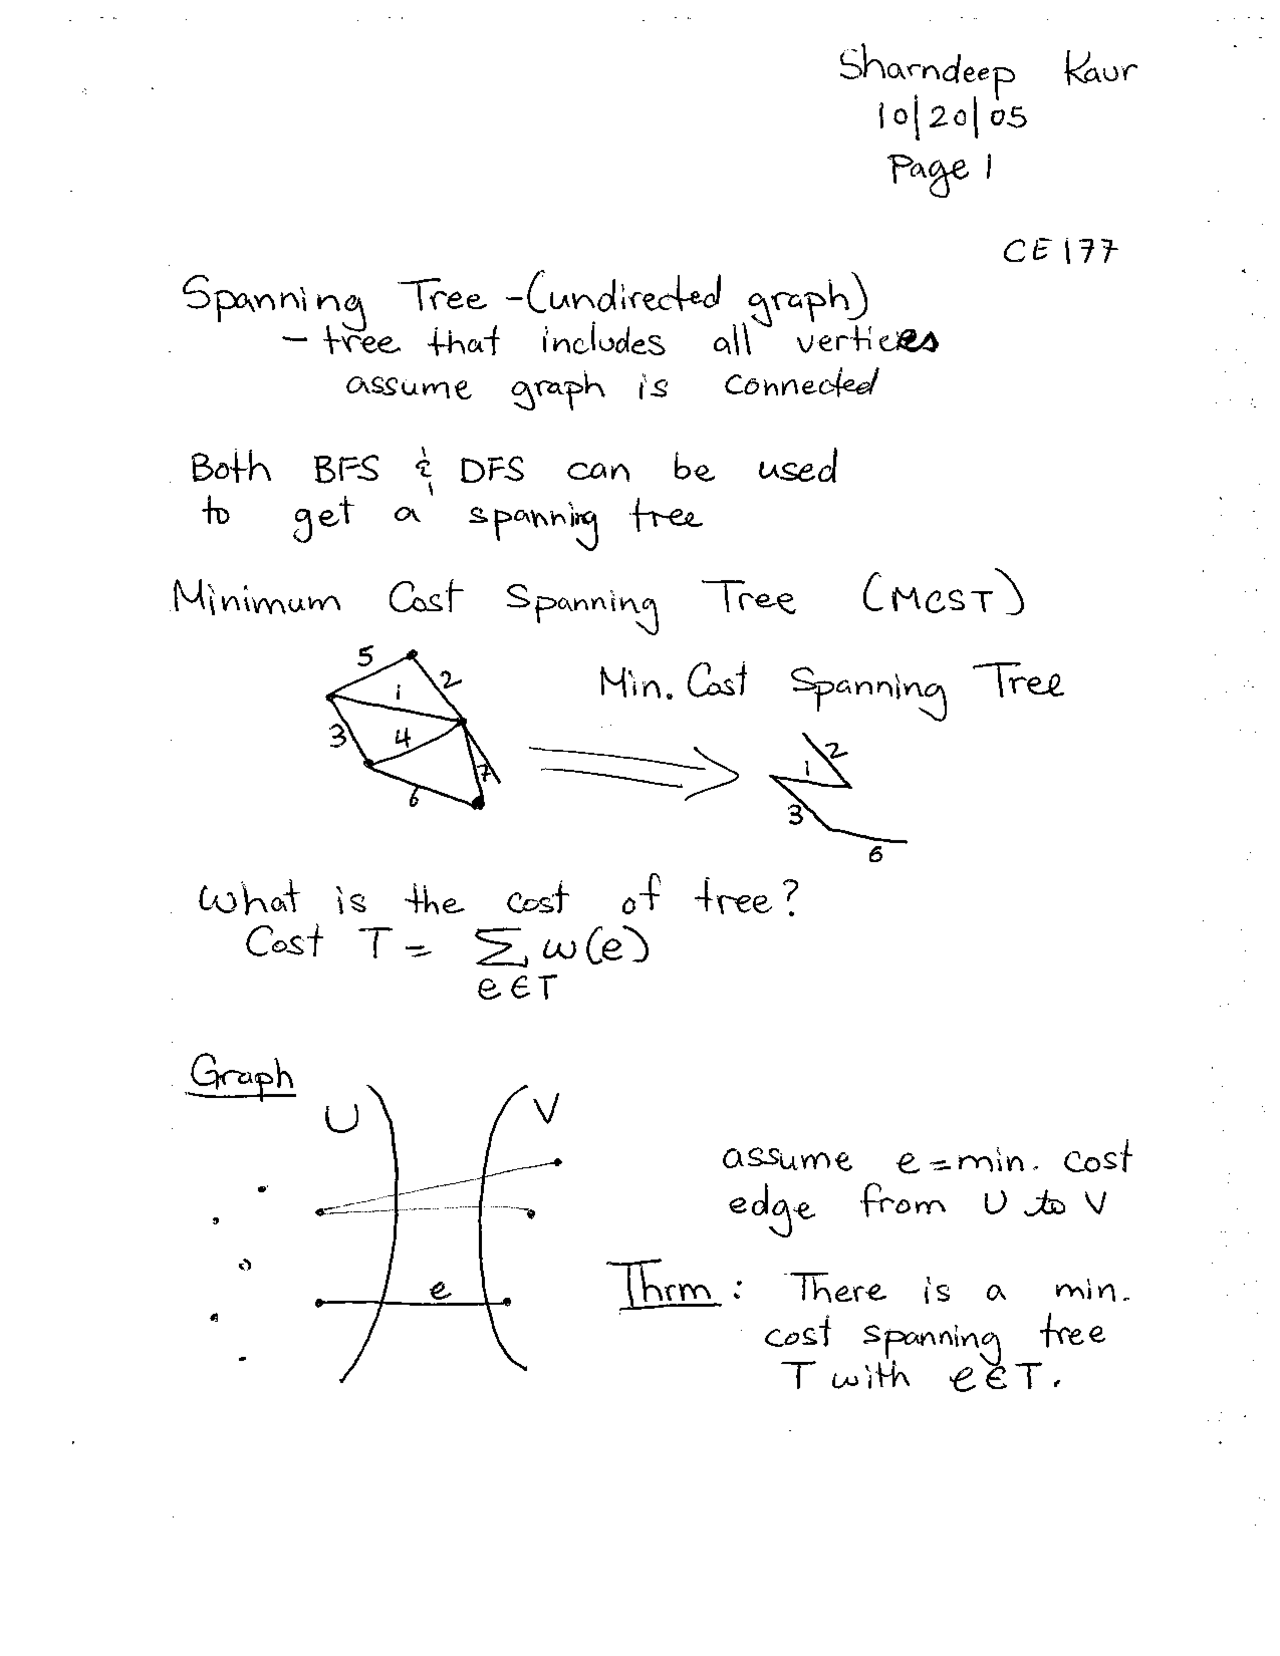 Sharndeep Kaur
10/20/05
Page 1
CE 177
Spanning Tree - (undirected graph)
- tree that includes all vertices
assume graph is connected
Both BFS & DFS can be used
to get a spanning tree
Minimum Cost Spanning Tree (MCST)
5
1
2
3
4
7
6
Min. Cost Spanning Tree
2
1
3
6
What is the cost of tree?
Cost T = Σ w(e)
e ∈ T
Graph
U
V
e
assume e = min. cost
edge from U to V
Thrm: There is a min.
cost spanning tree
T with e ∈ T.